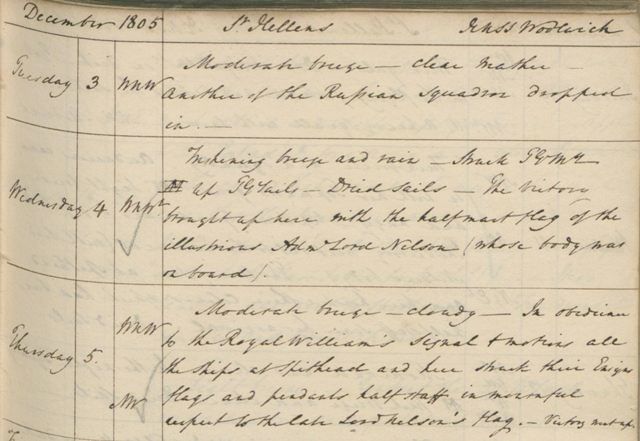 December 1805 St Hellens HMSS Woolwich
Tuesday 3 WNW Moderate breeze — clear Weather —
another of the Russian Squadron dropped
in. —
Freshening breeze and rain — Struck TGt Mts
Wednesday 4 up TGt Sails — Dried Sails — The Victory
brought up here with the halfmast flag of the
illustrious Adml Lord Nelson (whose body was
on board).
Moderate breeze — cloudy — In obedience
WNW to the Royal William's Signal & motions all
Thursday 5. the Ships at Spithead and here struck their Ensigns
NW flags and pendants half staff in mournful
respect to the late Lord Nelson's flag. — Victory went up